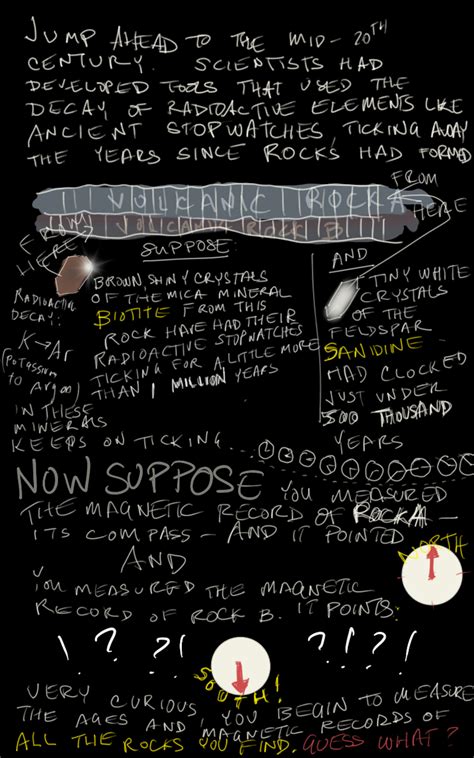 JUMP AHEAD TO THE MID-20TH
CENTURY. SCIENTISTS HAD
DEVELOPED TOOLS THAT USED THE
DECAY OF RADIOACTIVE ELEMENTS LIKE
ANCIENT STOPWATCHES, TICKING AWAY
THE YEARS SINCE ROCKS HAD FORMED
FROM
HERE
VOLCANIC ROCK A
VOLCANIC ROCK B
FROM
HERE
SUPPOSE
BROWN, SHINY CRYSTALS
OF THE MICA MINERAL
BIOTITE FROM THIS
ROCK HAVE HAD THEIR
RADIOACTIVE STOPWATCHES
TICKING FOR A LITTLE MORE
THAN 1 MILLION YEARS
AND
TINY WHITE
CRYSTALS
OF THE
FELDSPAR
SANIDINE
HAD CLOCKED
JUST UNDER
500 THOUSAND
YEARS
RADIOACTIVE
DECAY:
K→Ar
(POTASSIUM
TO ARGON)
IN THESE
MINERALS
KEEPS ON TICKING
NOW SUPPOSE YOU MEASURED
THE MAGNETIC RECORD OF ROCK A—
ITS COMPASS—AND IT POINTED
NORTH
AND
YOU MEASURED THE MAGNETIC
RECORD OF ROCK B. IT POINTS:
! ? ?! ?!?!
SOUTH!
VERY CURIOUS, YOU BEGIN TO MEASURE
THE AGES AND MAGNETIC RECORDS OF
ALL THE ROCKS YOU FIND. GUESS WHAT?